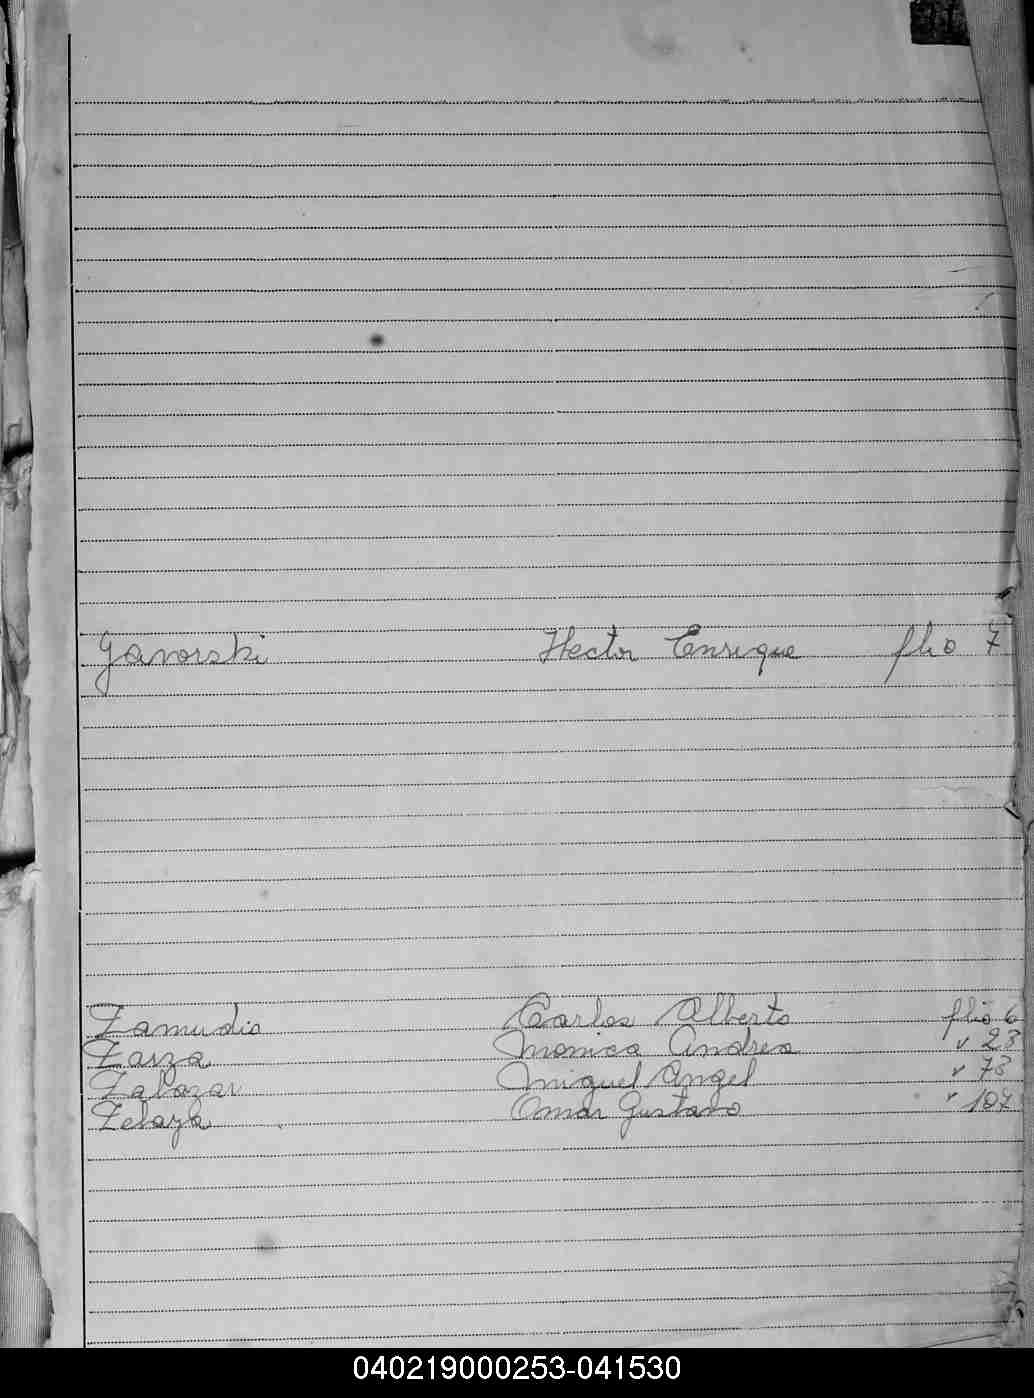 Yavorski Hector Enrique flio 7
Zamudio Carlos Alberto flio 6
Zarza Monica Andrea " 23
Zalazar Miguel Angel " 73
Zelaya Omar Gustavo " 107
040219000253-041530